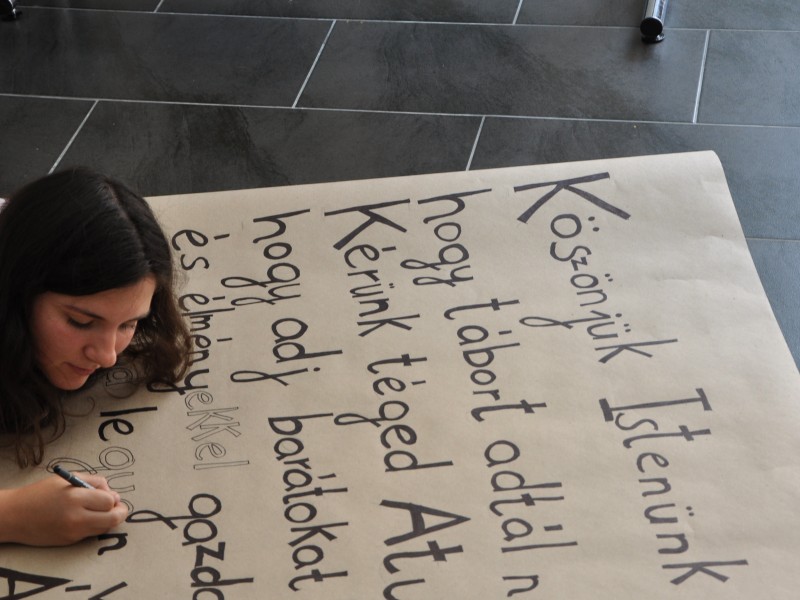 Köszönjük Istenünk
hogy tábort adtál
Kérünk téged
hogy adj barátokat
és élményekkel
legyen